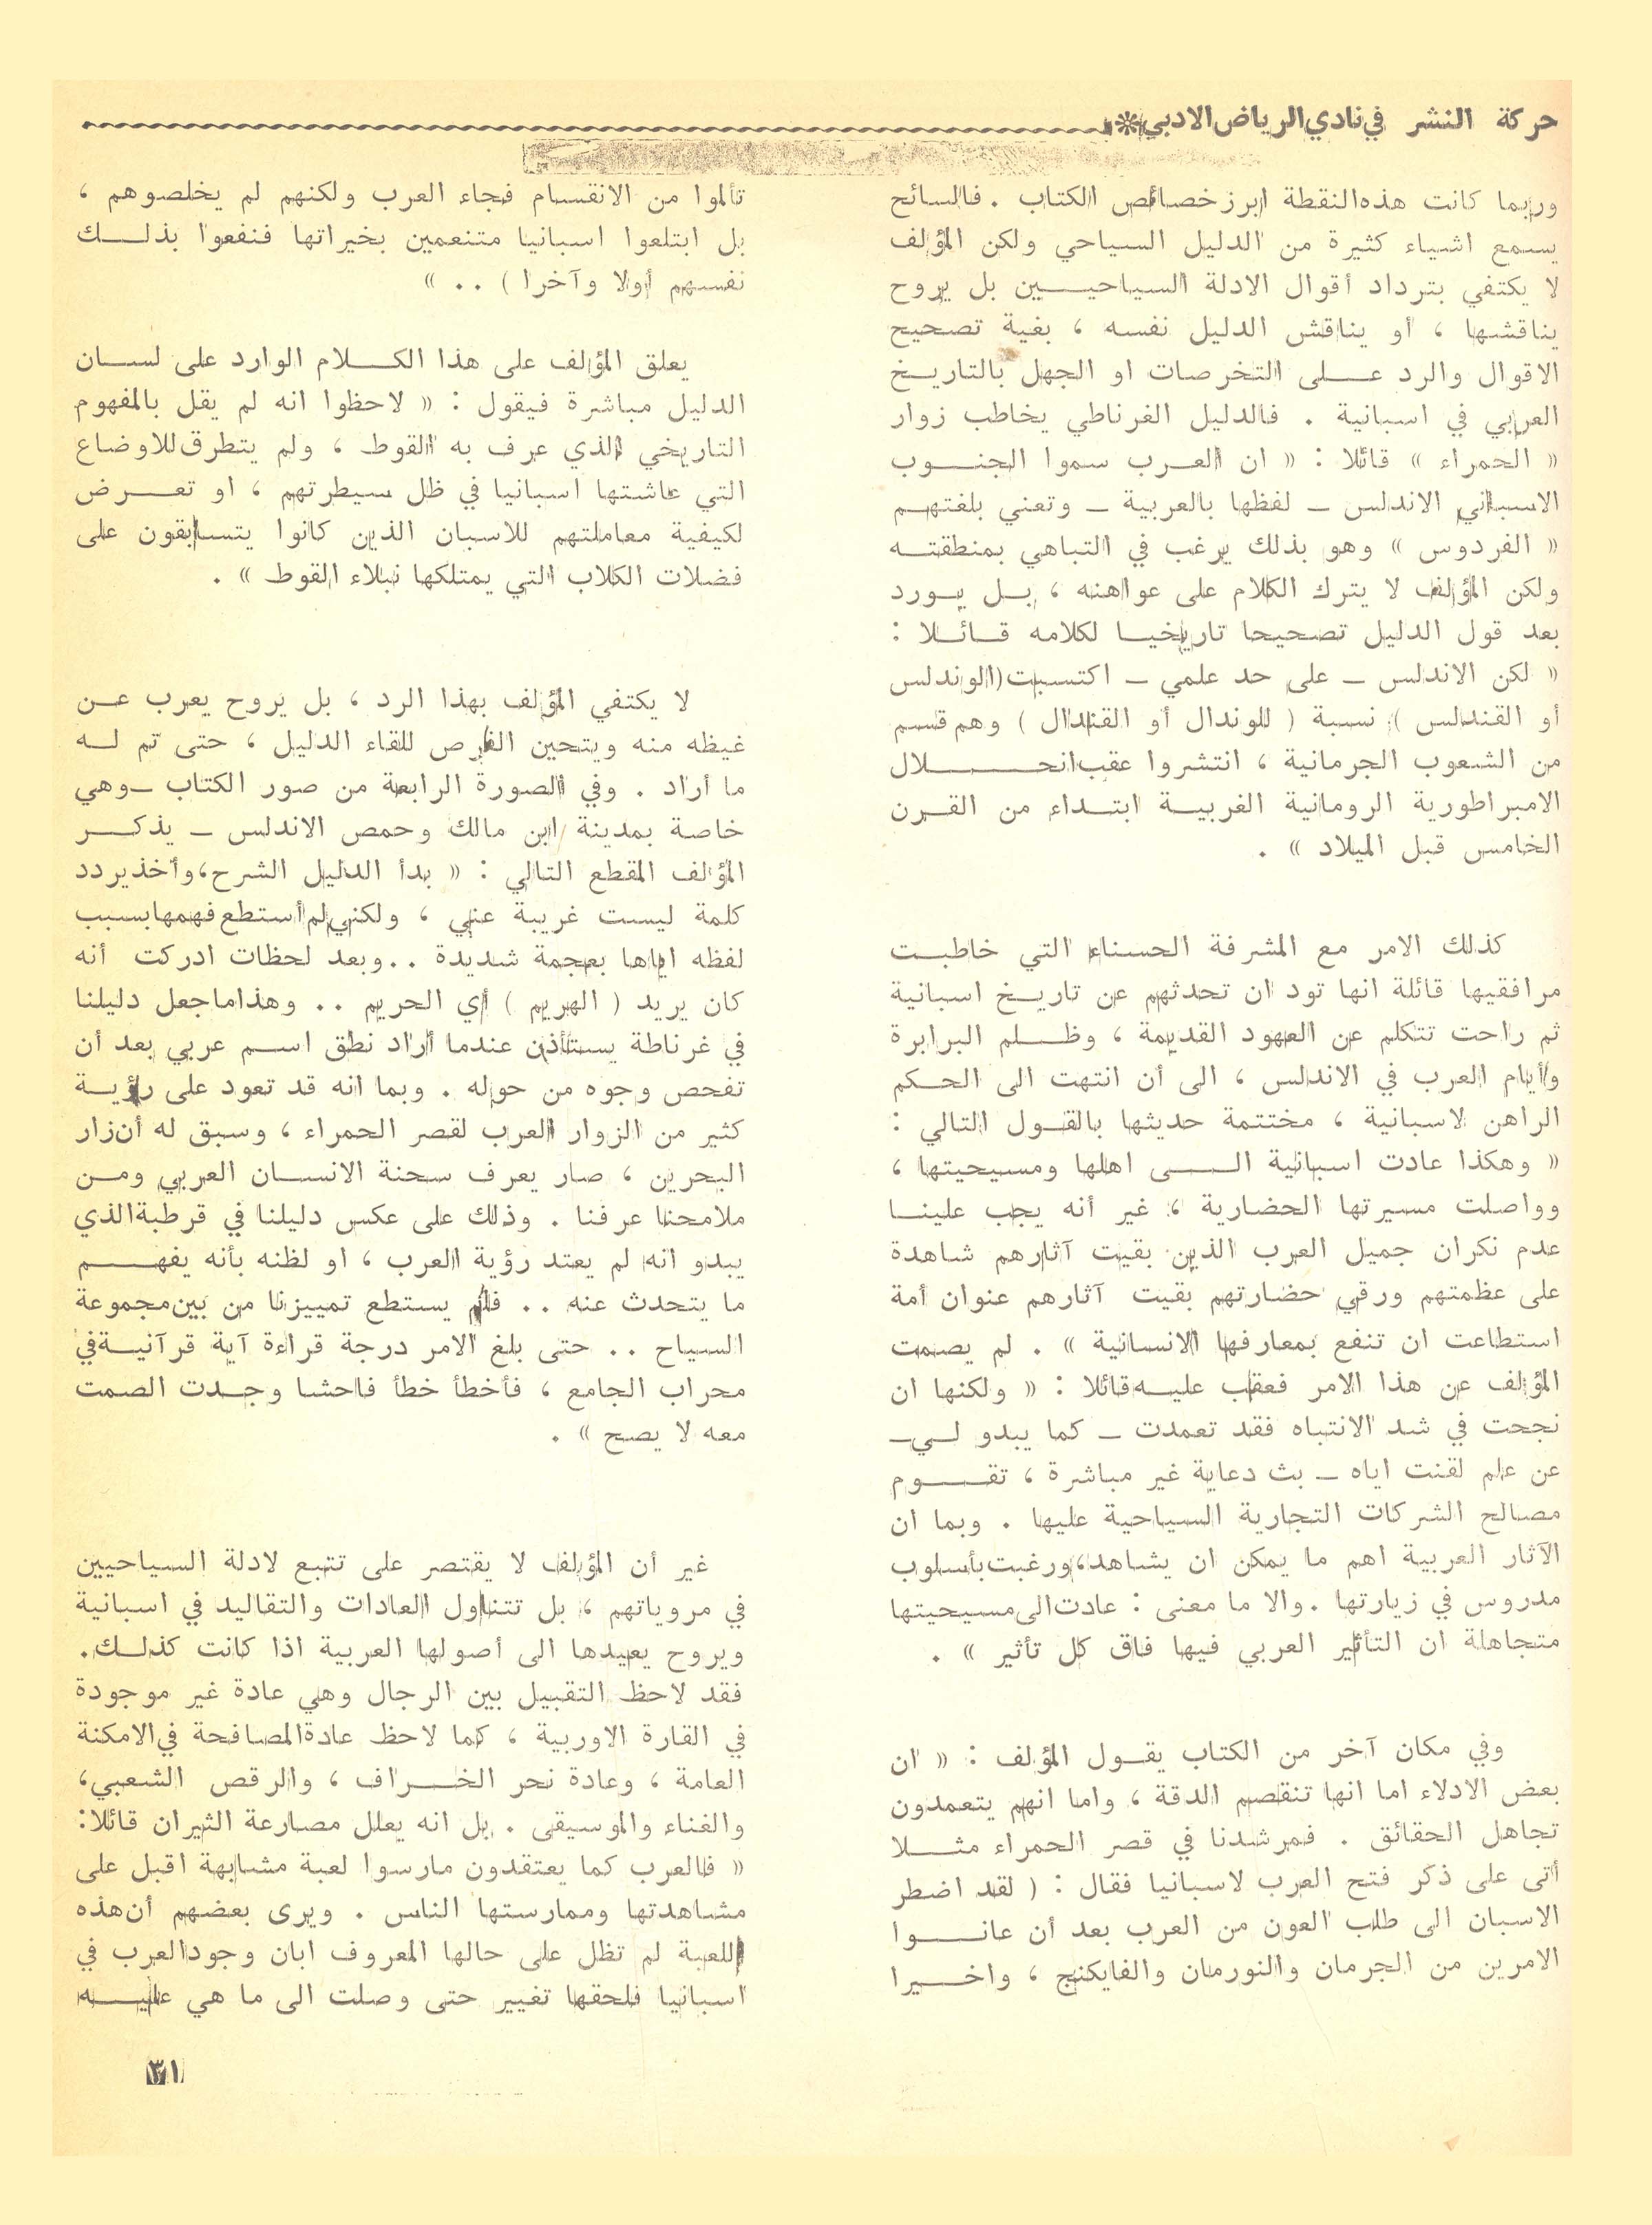 حركة النشر في نادي الرياض الادبي
وربما كانت هذه النقطة ابرز خصائص الكتاب . فالسائح
يسمع اشياء كثيرة من الدليل السياحي ولكن المؤلف
لا يكتفي بترداد أقوال الادلة السياحيين بل يروح
يناقشها ، أو يناقش الدليل نفسه ، بغية تصحيح
الاقوال والرد على التخرصات او الجهل بالتاريخ
العربي في اسبانية . فالدليل الغرناطي يخاطب زوار
« الحمراء » قائلا : « ان العرب سموا الجنوب
الاسباني الاندلس – لفظها بالعربية – وتعني بلغتهم
« الفردوس » وهو بذلك يرغب في التباهي بمنطقته
ولكن المؤلف لا يترك الكلام على عواهنه ، بل يورد
بعد قول الدليل تصحيحا تاريخيا لكلامه قائلا :
« لكن الاندلس – على حد علمي – اكتسبت (الوندلس
أو القندلس ) نسبة ( للوندال أو القندال ) وهم قسم
من الشعوب الجرمانية ، انتشروا عقب انحلال
الامبراطورية الرومانية الغربية ابتداء من القرن
الخامس قبل الميلاد » .
كذلك الامر مع المشرفة الحسناء التي خاطبت
مرافقيها قائلة انها تود ان تحدثهم عن تاريخ اسبانية
ثم راحت تتكلم عن العهود القديمة ، وظلم البرابرة
وأيام العرب في الاندلس ، الى أن انتهت الى الحكم
الراهن لاسبانية ، مختتمة حديثها بالقول التالي :
« وهكذا عادت اسبانية الى اهلها ومسيحيتها ،
وواصلت مسيرتها الحضارية ، غير أنه يجب علينا
عدم نكران جميل العرب الذين بقيت آثارهم شاهدة
على عظمتهم ورقي حضارتهم بقيت آثارهم عنوان أمة
استطاعت ان تنفع بمعارفها الانسانية » . لم يصمت
المؤلف عن هذا الامر فعقب عليه قائلا : « ولكنها ان
نجحت في شد الانتباه فقد تعمدت – كما يبدو لي –
عن علم لقنت اياه – بث دعاية غير مباشرة ، تقوم
مصالح الشركات التجارية السياحية عليها . وبما ان
الآثار العربية اهم ما يمكن ان يشاهد، ورغبت بأسلوب
مدروس في زيارتها . والا ما معنى : عادت الى مسيحيتها
متجاهلة ان التأثير العربي فيها فاق كل تأثير » .
وفي مكان آخر من الكتاب يقول المؤلف : « ان
بعض الادلاء اما انها تنقصهم الدقة ، واما انهم يتعمدون
تجاهل الحقائق . فمرشدنا في قصر الحمراء مثلا
أتى على ذكر فتح العرب لاسبانيا فقال : ( لقد اضطر
الاسبان الى طلب العون من العرب بعد أن عانوا
الامرين من الجرمان والنورمان والفايكنج ، واخيرا
تألموا من الانقسام فجاء العرب ولكنهم لم يخلصوهم ،
بل ابتلعوا اسبانيا متنعمين بخيراتها فنفعوا بذلك
نفسهم أولا وآخرا ) . . »
يعلق المؤلف على هذا الكلام الوارد على لسان
الدليل مباشرة فيقول : « لاحظوا انه لم يقل بالمفهوم
التاريخي الذي عرف به القوط ، ولم يتطرق للاوضاع
التي عاشتها اسبانيا في ظل سيطرتهم ، او تعرض
لكيفية معاملتهم للاسبان الذين كانوا يتسابقون على
فضلات الكلاب التي يمتلكها نبلاء القوط » .
لا يكتفي المؤلف بهذا الرد ، بل يروح يعرب عن
غيظه منه ويتحين الفرص للقاء الدليل ، حتى تم له
ما أراد . وفي الصورة الرابعة من صور الكتاب – وهي
خاصة بمدينة ابن مالك وحمص الاندلس – يذكر
المؤلف المقطع التالي : « بدأ الدليل الشرح، وأخذ يردد
كلمة ليست غريبة عني ، ولكني لم أستطع فهمها بسبب
لفظه اياها بعجمة شديدة . . وبعد لحظات ادركت أنه
كان يريد ( الهريم ) أي الحريم . . وهذا ما جعل دليلنا
في غرناطة يستأذن عندما أراد نطق اسم عربي بعد أن
تفحص وجوه من حوله . وبما انه قد تعود على رؤية
كثير من الزوار العرب لقصر الحمراء ، وسبق له أن زار
البحرين ، صار يعرف سحنة الانسان العربي ومن
ملامحنا عرفنا . وذلك على عكس دليلنا في قرطبة الذي
يبدو انه لم يعتد رؤية العرب ، او لظنه بأنه يفهم
ما يتحدث عنه . . فلم يستطع تمييزنا من بين مجموعة
السياح . . حتى بلغ الامر درجة قراءة آية قرآنية في
محراب الجامع ، فأخطأ خطأ فاحشا وجدت الصمت
معه لا يصح » .
غير أن المؤلف لا يقتصر على تتبع لادلة السياحيين
في مروياتهم ، بل تتناول العادات والتقاليد في اسبانية
ويروح يعيدها الى أصولها العربية اذا كانت كذلك.
فقد لاحظ التقبيل بين الرجال وهي عادة غير موجودة
في القارة الاوربية ، كما لاحظ عادة المصافحة في الامكنة
العامة ، وعادة نحر الخراف ، والرقص الشعبي،
والغناء والموسيقى . بل انه يعلل مصارعة الثيران قائلا:
« فالعرب كما يعتقدون مارسوا لعبة مشابهة اقبل على
مشاهدتها وممارستها الناس . ويرى بعضهم أن هذه
اللعبة لم تظل على حالها المعروف ابان وجود العرب في
اسبانيا فلحقها تغيير حتى وصلت الى ما هي عليه
٣١